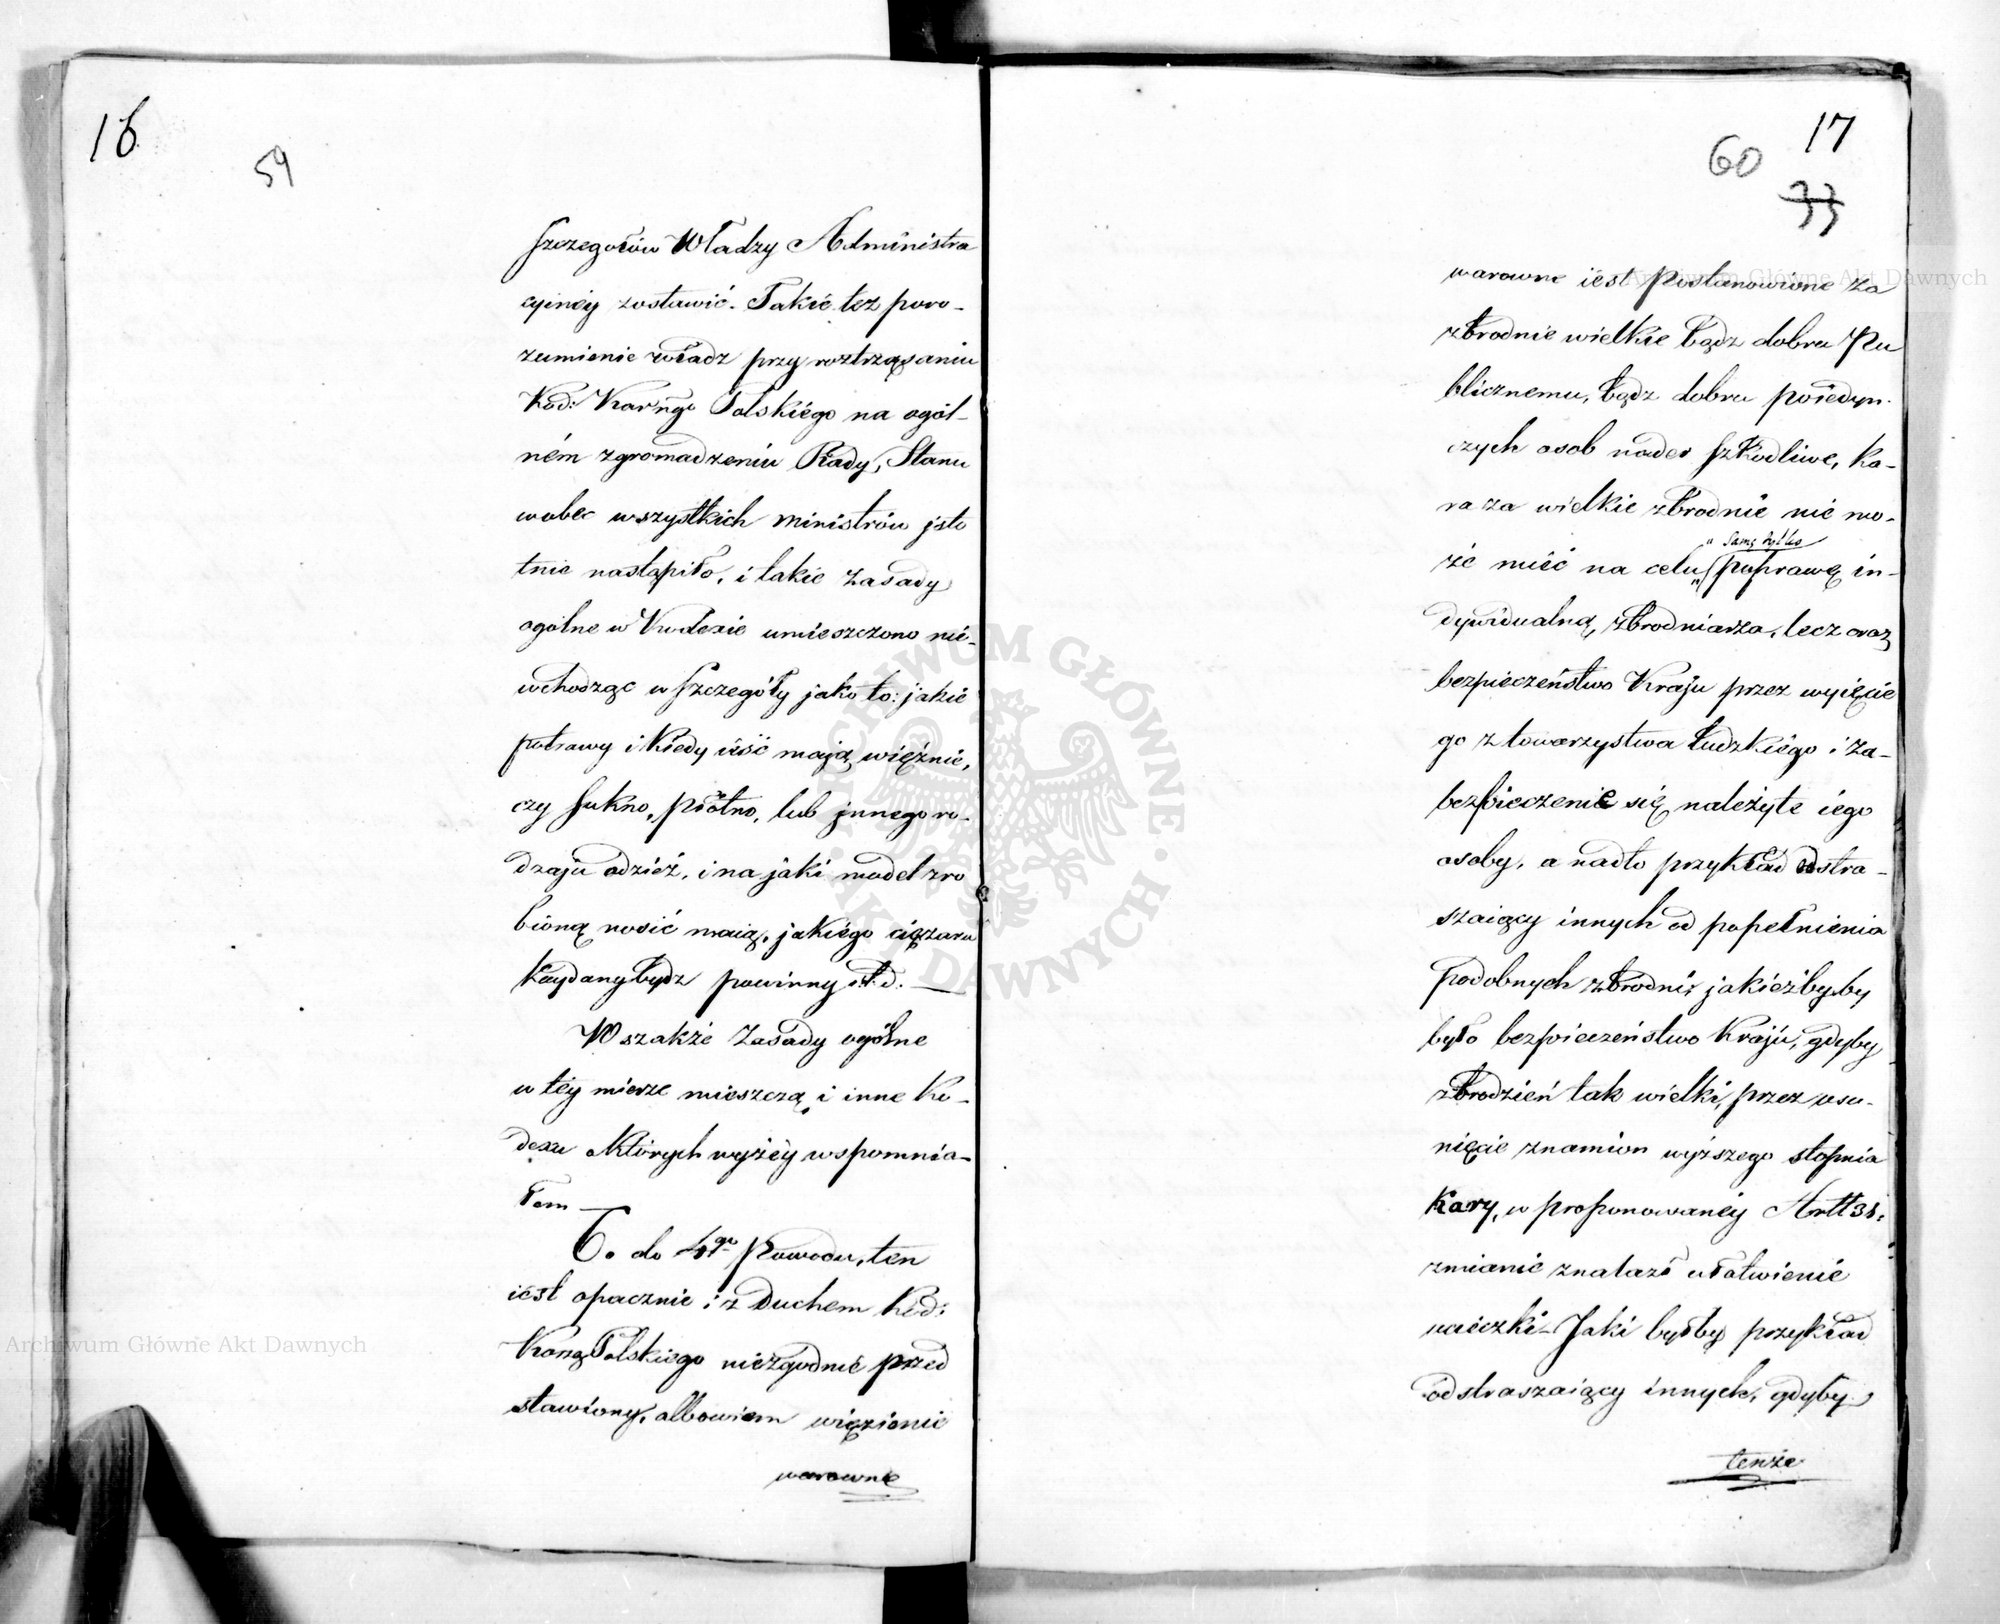 16
59
szczegołów Władzy Administra
cyinéy zostawić. Takie też poro-
zumienie władz przy roztrząsaniu
Kod: Karn͠go Polskiégo na ogól-
ném zgromadzeniu Rady, Stanu
wobec wszystkich ministrów jsto
tnie nastąpiło, i takie zasady
ogólne w Kodexie umieszczono nie-
wchodząc w szczegóły jako to: jakie
potrawy i kiedy iéść mają więźnie,
czy sukno, płótno, lub jnnego ro-
dzaju odzież, i na jaki model zro
bioną nosić maią, jakiégo ciężaru
kaydany bydz powinny i.t.d. —
Wszakże zasady ogólne
w téy mierze mieszczą i inne Ko-
dexa których wyżéy wspomnia-
łem —
6. do 4go Powodu, ten
iest opacznie i z Duchem Kod:
Karng Polskiego niezgodnie przed
stawiony, albowiem więzienie
warowne
17
60
33
warowne iest postanowione za
zbrodnie wielkie bądz dobru Pu
blicznemu, bądz dobru poiedyn-
czych osob nader szkodliwe, ka-
ra za wielkie zbrodnie nie mo-
samę tylko
że mieć na celu poprawę in-
dywidualną zbrodniarza, lecz oraz
bezpieczeństwo Kraju przez wyięcie
go z towarzystwa ludzkiégo i za-
bezpieczenie się należyte iego
osoby, a nadto przykład odstra-
szaiący innych od popełnienia
podobnych zbrodni, jakieżbyby
było bezpieczeństwo Kraju, gdyby
zbrodzień tak wielki, przez usu-
nięcie znamion wyższego stopnia
kary, w proponowanéy Artt 38:
zmianie znalazł ułatwienie
ucieczki – Jaki byłby przykład
odstraszaiący innych, gdyby
tenże
Archiwum Główne Akt Dawnych
Archiwum Główne Akt Dawnych
ARCHIWUM GŁÓWNE AKT DAWNYCH